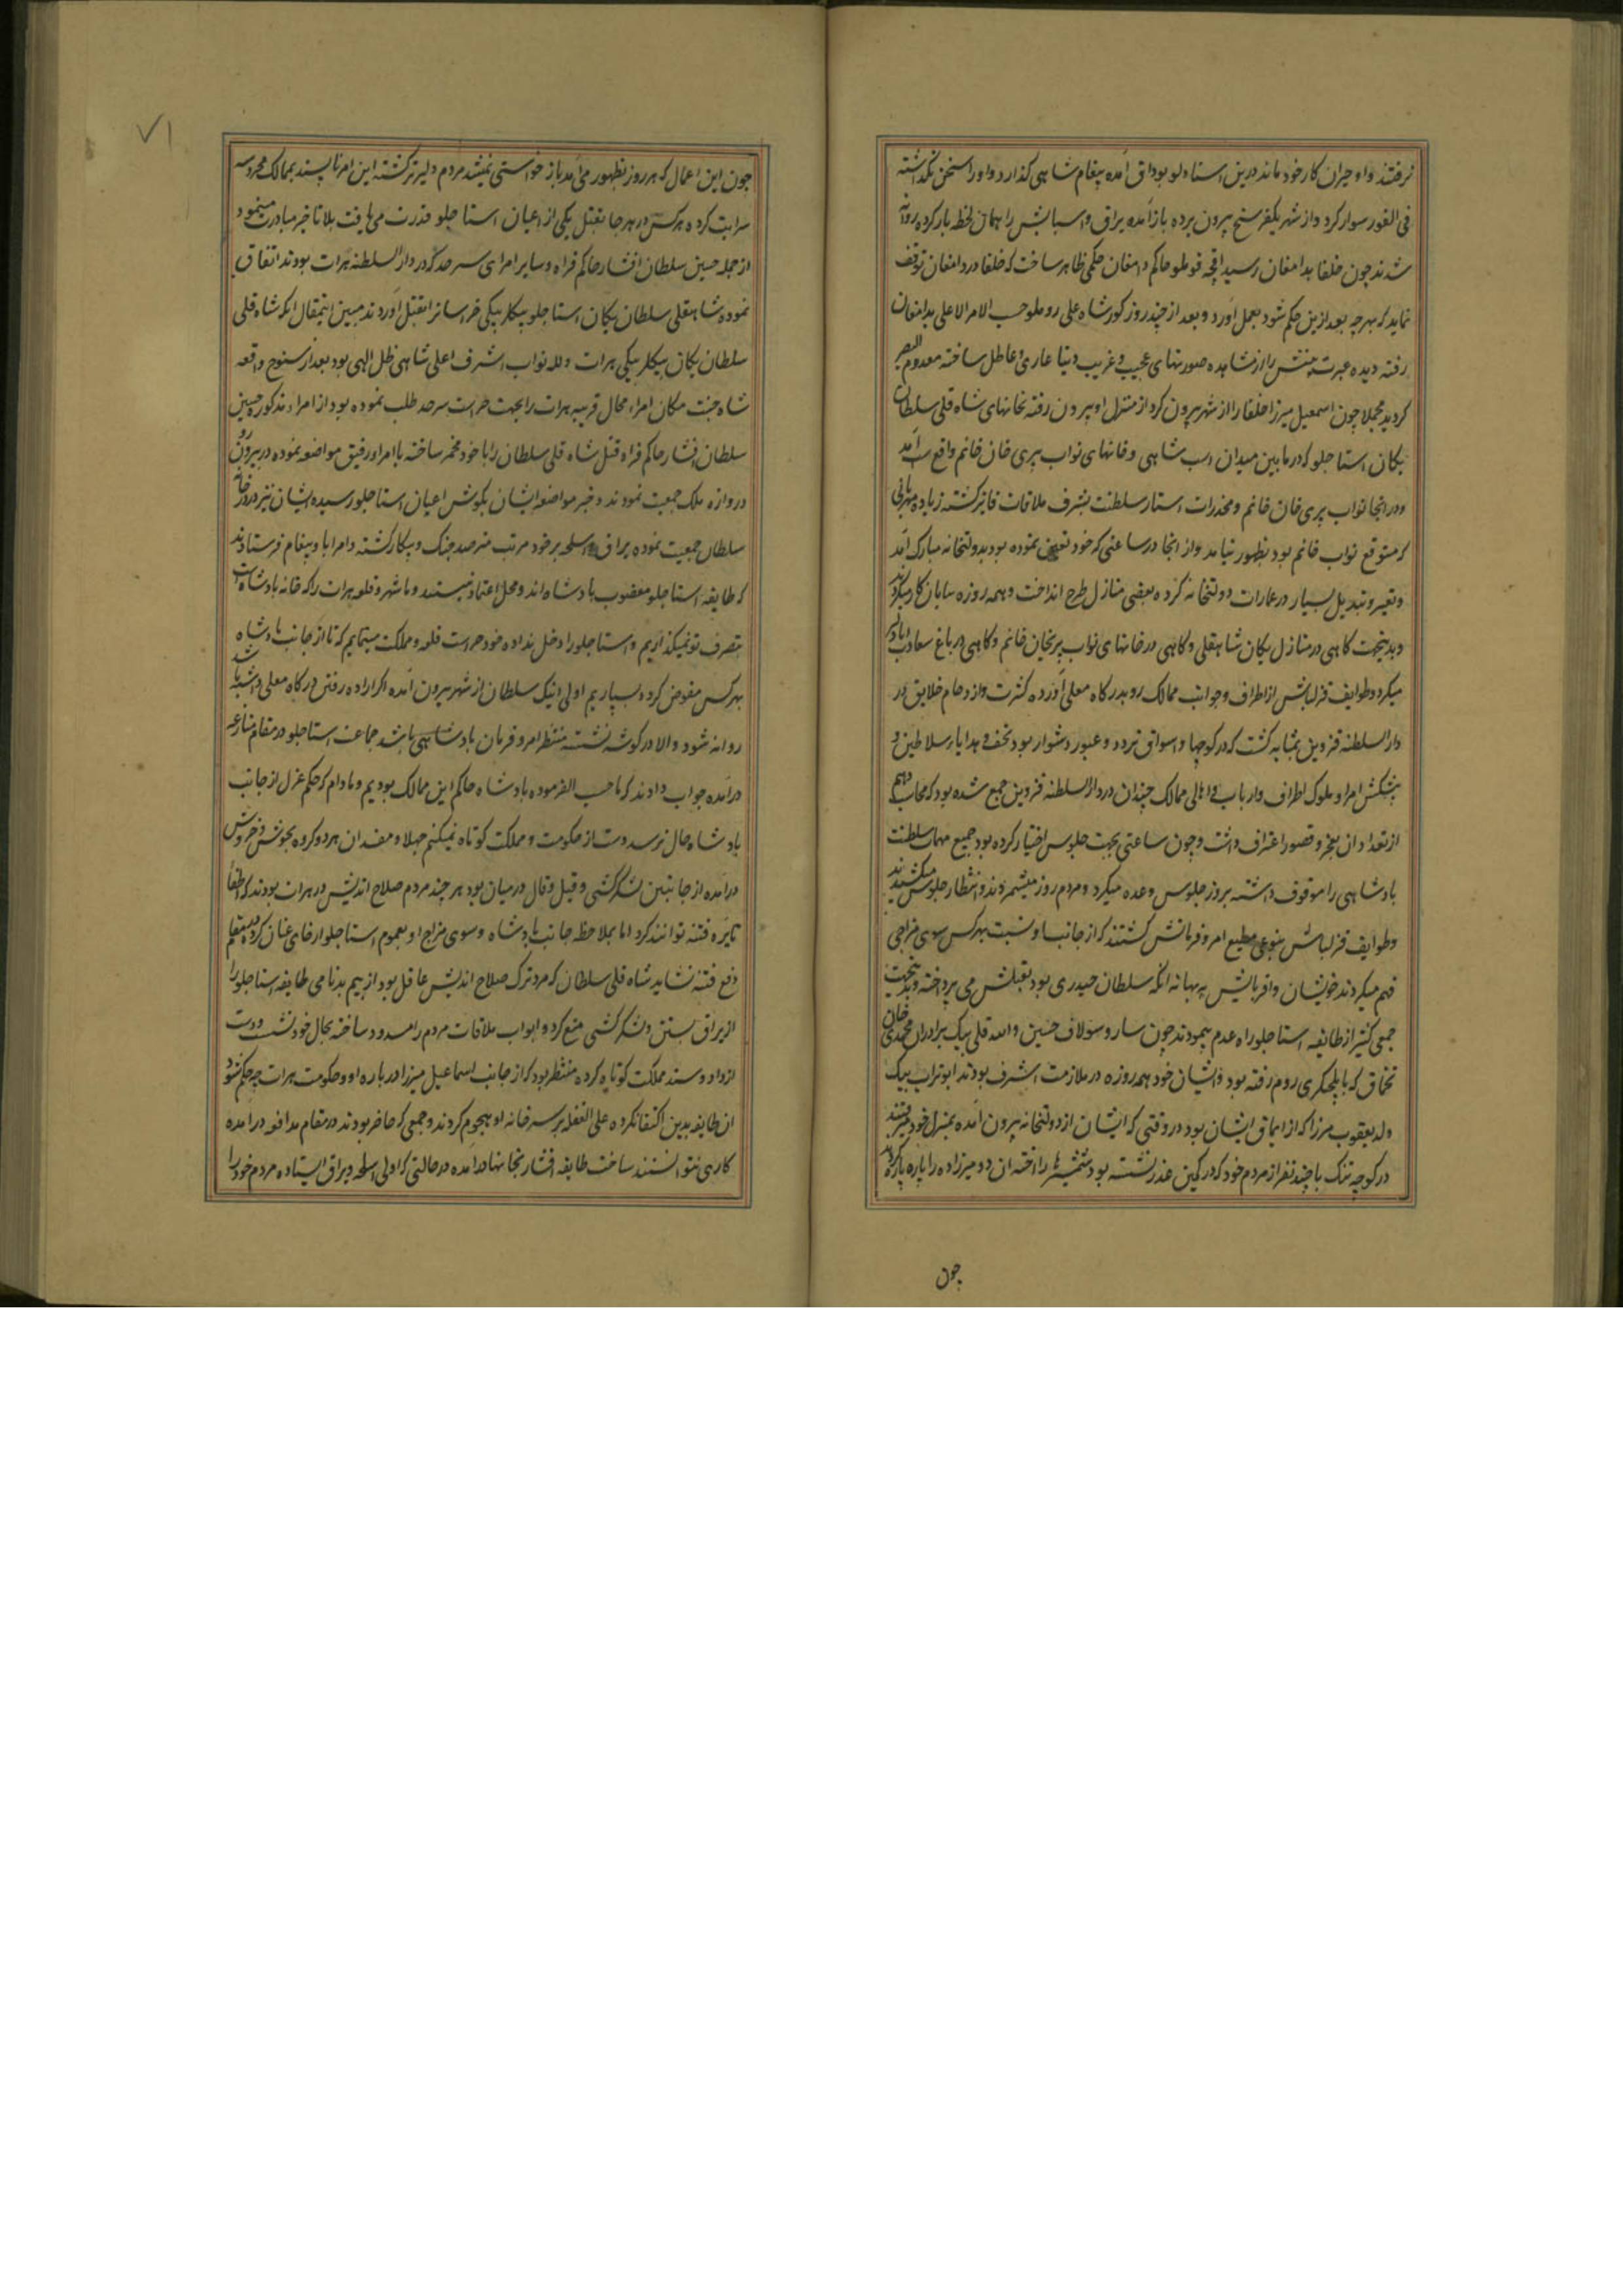 نرفتند و او حیران کار خود ماند درین استاد لو بوداق آمده پیغام شاهی گذارد و او را سخن نگذاشته
فی الفور سوار کرد و از شهر یکفرسخ بیرون برده باز آمده یراق و اسبابش را همان لحظه بار کرده روانه
شدند چون خلفا بدامغان رسید اقچه قوطلو حاکم دامغان حکمی ظاهر ساخت که خلفا در دامغان توقف
نماید که بهرچه بعد ازین حکم شود بعمل آورد و بعد از چند روز کور شاه علی روملو حسب الامر الاعلی بدامغان
رفته دیده عبرت بینش را از مشاهده صورتهای عجیب و غریب دنیا عاری و عاطل ساخته معدوم البصر
کردید مجملا چون اسمعیل میرزا خلفا را از شهر بیرون کرد از منزل او بیرون رفته بخانهای شاه قلی سلطان
یکان استاجلو که در ما بین میدان اسب شاهی و خانهای نواب پری خان خانم واقع است آمد
و در انجا نواب پری خان خانم و مخدرات استار سلطنت بشرف ملاقات فایز کشته زیاده مهربانی
که متوقع نواب خانم بود بظهور نیامد و از انجا در ساعتی که خود تعین نموده بود بدولتخانه مبارک آمد
و تغییر و تبدیل بسیار در عمارات دولتخانه کرده بعضی منازل طرح انداخت و همه روزه سایان کار میکردند
و بدینجهت کاهی در منازل یکان شاهقلی و کاهی در خانهای نواب پریخان خانم و کاهی در باغ سعادت اباد سیر
میکرد و طوایف قزلباش از اطراف و جوانب ممالک رو بدرکاه معلی آورده کثرت و ازدحام خلایق در
دار السلطنه قزوین بمثابه کشت که در کوچها و اسواق تردد و عبور دشوار بود تحف و هدایاء سلاطین و
پیشکش امرا و ملوک اطراف و ارباب و اهالی ممالک چندان در دار السلطنه قزوین جمع شده بود که محاسب وهم
از تعداد ان بعجز و قصور اعتراف داشت و چون ساعتی بجهت جلوس اختیار کرده بود جمیع مهمات سلطنت
پادشاهی را موقوف داشته بروز جلوس وعده میکرد و مردم روز میشمردند و انتظار جلوس میکشیدند
و طوایف قزلباش بنوعی مطیع امر و فرمانش کشتند که از جانب او نسبت بهر کس سوی مزاجی
فهم میکردند خویشان و اقربایش به بهانه انکه سلطان حیدری بود بقتلش می پرداخته و بدینجهت
جمعی کثیر از طایفه استاجلو راه عدم پیمودند چون سارو سولاف حسین و الله قلی بیک برادران محمدی خان
تخماق که بایلچیکری روم رفته بود و ایشان خود همه روزه در ملازمت اشرف بودند ابوتراب بیک
ولد یعقوب میرزا که از ایماق ایشان بود در وقتی که ایشان از دولتخانه بیرون آمده بمنزل خود میرفتند
در کوچه تنک با چند نفر از مردم خود که در کمین غدر نشسته بود شمشیرها را اخته ان دو میرزاده را پاره پاره کردند
چون
۷۱
چون این اعمال که هر روز بظهور می آمد باز خواستی نمیشد مردم دلیرتر کشته این امر ناپسند بممالک محروسه
سرایت کرده هر کس در هر جا بقتل یکی از اعیان استاجلو قدرت می یافت بلا تاخیر مبادرت مینمود
از جمله حسین سلطان افشار حاکم فراه و سایر امرای سرحد که در دار السلطنه هرات بودند اتفاق
نموده شاهقلی سلطان یکان استاجلو بیکلربیکی خراسانرا بقتل آوردند مبین اینمقال انکه شاه قلی
سلطان یکان بیکلربیکی هرات و لله نواب اشرف اعلی شاهی ظل الهی بود بعد از سنوح واقعه
شاه جنت مکان امراء محال قریبه هرات را بجهت حراست سرحد طلب نموده بود از امراء مذکوره حسین
سلطان افشار حاکم فراه قتل شاه قلی سلطان را با خود مخمر ساخته با امراء رفیق مواضعه نموده در بیرون
دروازه ملک جمعیت نمودند و خبر مواضعه ایشان بکوش اعیان استاجلو رسیده ایشان نیز در در خانه
سلطان جمعیت نموده یراق و اسلحه بر خود مرتب مترصد جنک و پیکار کشته و امرا با و پیغام فرستادند
که طایفه استاجلو مغضوب پادشاه اند و محل اعتماد نیستند و ما شهر و قلعه هرات را که خانه پادشاه است
بتصرف تو نمیکذاریم و استاجلو را دخل نداده خود حراست قلعه و مملکت مینمایم که تا از جانب پادشاه
بهر کس مفوض کرده بسپاریم اولی اینک سلطان از شهر بیرون آمده اکر اراده رفتن درکاه معلی داشته باشد
روانه شود و الا در کوشه نشسته منتظر امر و فرمان پادشاهی باشد جماعت استاجلو در مقام منازعه
درآمده جواب دادند که ما حسب الفرموده پادشاه حاکم این ممالک بودیم و مادام که حکم عزل از جانب
پادشاه حال نرسد دست از حکومت و مملکت کوتاه نمیکنم جهلا و مفسدان هر دو کروه بجوش و خروش
درآمده از جانبین لشکرکشی و قیل و قال در میان بود هر چند مردم صلاح اندیش در هرات بودند که اطفا
نایره فتنه توانند کرد اما بملاحظه جانب پادشاه و سوی مزاج او بعموم استاجلو ارخای عنان کرده
دفع فتنه نشاید شاه قلی سلطان که مرد ترک صلاح اندیش عاقل بود از بیم بدنامی طایفه استاجلو را
از یراق بستن و لشکرکشی منع کرد و ابواب ملاقات مردم را مسدود ساخته بحال خود نشست و دست
از داد و ستد مملکت کوتاه کرده منتظر بود که از جانب اسماعیل میرزا درباره او و حکومت هرات چه حکم شود
ان طایفه بدین اکتفا نکرده علی الغفله بر سر خانه او هجوم کردند و جمعی که حاضر بودند در مقام مدافعه درآمده
کاری نتوانستند ساخت طایفه افشار بخانها درآمده در حالتی که او بی اسلحه و یراق ایستاده مردم خود را